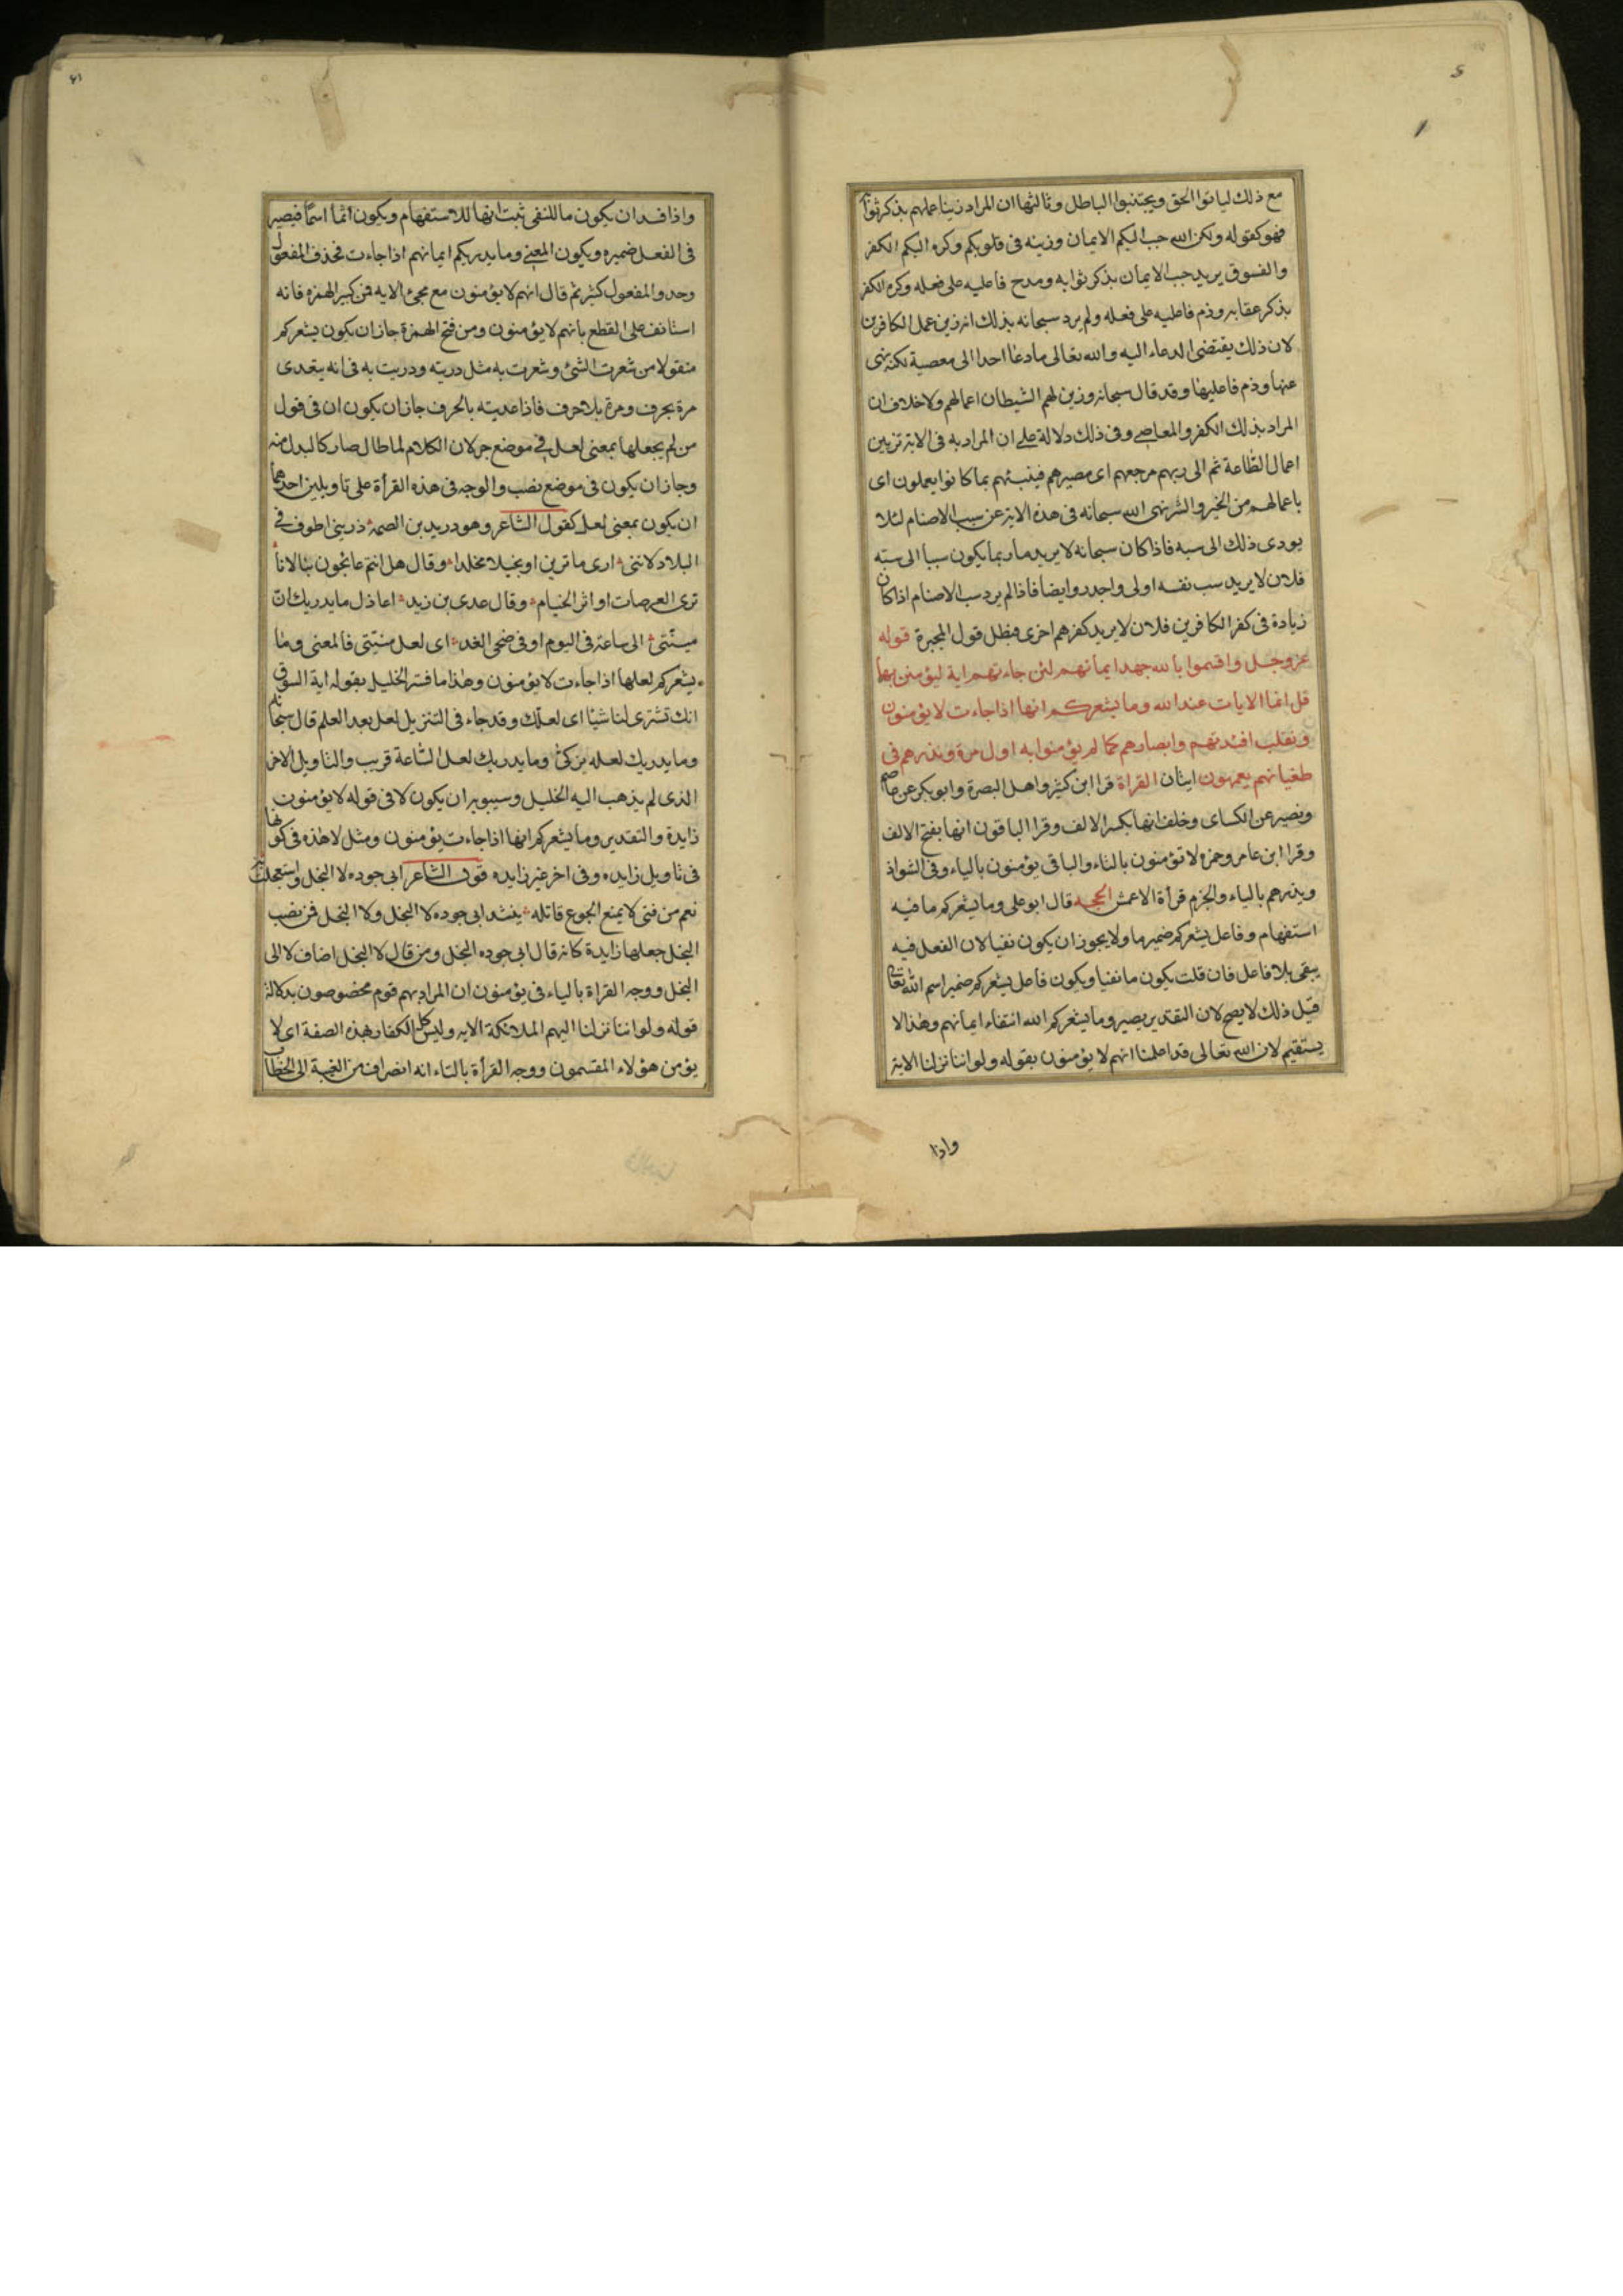 مع ذلك لياتوا الحق ويجتنبوا الباطل وثالثها ان المراد زينا عملهم بذكر ثوابه
فهو كقوله ولكن الله حبب اليكم الايمان وزينه فى قلوبكم وكره اليكم الكفر
والفسوق يريد حبب الايمان بذكر ثوابه ومدح فاعليه على فعله وكره الكفر
بذكر عقابه وذم فاعليه على فعله ولم يرد سبحانه بذلك انه زين عمل الكافرين
لان ذلك يقتضى الدعاء اليه والله تعالى مادعا احدا الى معصية لكنه نهى
عنها وذم فاعليها وقد قال سبحانه وزين لهم الشيطان اعمالهم ولا خلاف ان
المراد بذلك الكفر والمعاصى وفى ذلك دلالة على ان المراد به فى الاية تزيين
اعمال الطاعة ثم الى ربهم مرجعهم اى مصيرهم فينبئهم بما كانوا يعملون اى
باعمالهم من الخير والشر نهى الله سبحانه فى هذه الاية عن سب الاصنام لئلا
يودى ذلك الى سبه فاذا كان سبحانه لا يريد ما ربما يكون سببا الى سبه
فلان لا يريد سب نفسه اولى واجدر وايضا فاذا لم يرد سب الاصنام اذا كان
زيادة فى كفر الكافرين فلان لا يريد كفرهم احرى فبطل قول المجبرة قوله
عز وجل واقسموا بالله جهد ايمانهم لئن جاءتهم اية ليؤمنن بها
قل انما الايات عند الله وما يشعركم انها اذا جاءت لا يؤمنون
ونقلب افئدتهم وابصارهم كما لم يؤمنوا به اول مرة ونذرهم فى
طغيانهم يعمهون ايتان القراة قرا ابن كثير واهل البصرة وابو بكر عن عاصم
ونصير عن الكساى وخلف انها بكسر الالف وقرا الباقون انها بفتح الالف
وقرا ابن عامر وحمزه لا تؤمنون بالتاء والباقى يؤمنون بالياء وفى الشواذ
ويذرهم بالياء والجزم قرأة الاعمش الحجه قال ابو على وما يشعركم ما فيه
استفهام وفاعل يشعركم ضمير ما ولا يجوز ان يكون نفيا لان الفعل فيه
يبقى بلا فاعل فان قلت يكون ما نفيا ويكون فاعل يشعركم ضمير اسم الله تعالى
قيل ذلك لا يصح لان التقدير يصير وما يشعركم الله انتفاء ايمانهم وهذا لا
يستقيم لان الله تعالى قد اعلمنا انهم لا يؤمنون بقوله ولو اننا نزلنا الاية
واذا
واذا فسد ان يكون ما للنفى ثبت انها للاستفهام ويكون انما اسمًا فيصير
فى الفعل ضميره ويكون المعنى وما يدريكم ايمانهم اذا جاءت فحذف المفعول
وحذف المفعول كثير ثم قال انهم لا يؤمنون مع مجئ الايه فمن كسر الهمزه فانه
استانف على القطع بانهم لا يؤمنون ومن فتح الهمزة جاز ان يكون يشعركم
منقولا من شعرت الشئ وشعرت به مثل دريته ودريت به فى انه يتعدى
مرة بحرف ومرة بلا حرف فاذا عديته بالحرف جاز ان يكون ان فى قول
من لم يجعلها بمعنى لعل فى موضع جر لان الكلام لما طال صار كالبدل منه
وجاز ان يكون فى موضع نصب والوجه فى هذه القرأة على تاويلين احدهما
ان يكون بمعنى لعل كقول الشاعر وهو دريد بن الصمة ذرينى اطوف فى
البلاد لاننى ارى ما ترين او بخيلا مخلدا وقال هل انتم عائجون بنا لانا
نرى العرصات او اثر الخيام وقال عدى بن زيد اعاذل ما يدريك انّ
منيّتى الى ساعة فى اليوم او فى ضحى الغد اى لعل منيّتى فالمعنى وما
يشعركم لعلها اذا جاءت لا يؤمنون وهذا ما فسّر الخليل بقوله اية السوق
انك تشترى لنا شيئًا اى لعلّك وقد جاء فى التنزيل لعل بعد العلم قال سبحانه
وما يدريك لعله يزكى وما يدريك لعل الساعة قريب والتاويل الاخر
الذى لم يذهب اليه الخليل وسيبويه ان يكون لا فى قوله لا يؤمنون
زايدة والتقدير وما يشعركم انها اذا جاءت يؤمنون ومثل لا هذه فى كونها
فى تاويل زايده وفى اخر غير زايده قول الشاعر ابى جوده لا البخل واستعجلت به
نعم من فتى لا يمنع الجوع قاتله ينشد ابى جوده لا البخل ولا البخل فمن نصب
البخل جعلها زايدة كانه قال ابى جوده البخل ومن قال لا البخل اضاف لا الى
البخل ووجه القراة بالياء فى يؤمنون ان المراد بهم قوم مخصوصون بدلالة
قوله ولو اننا نزلنا اليهم الملائكة الايه وليس كل الكفار بهذه الصفة اى لا
يؤمن هؤلاء المقسمون ووجه القرأة بالتاء انه انصراف من الغيبة الى الخطاب